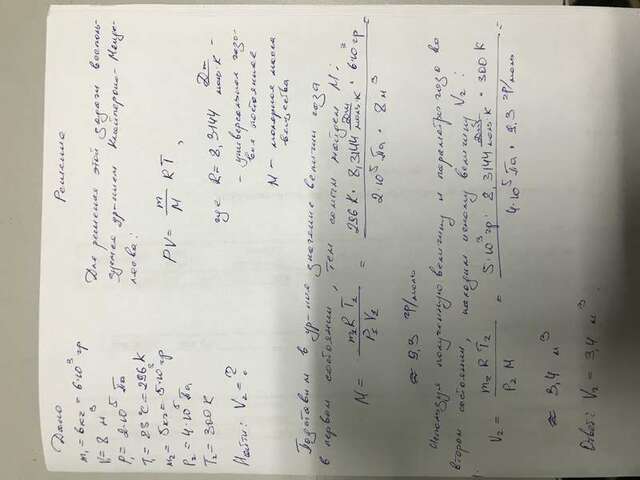 Дано
m₁ = 6кг = 6·10³ гр
V₁ = 8 м³
P₁ = 2·10⁵ Па
T₁ = 23°C = 296 K
m₂ = 5кг = 5·10³ гр
P₂ = 4·10⁵ Па
T₂ = 300 K
Найти: V₂ = ?
Решение
Для решения этой задачи восполь-
зуемся ур-нием Клайперона-Менде-
леева:
PV = m/M RT,
где R = 8,3144 Дж/моль·К -
- универсальная газо-
вая постоянная
M - молярная масса
вещества
Подставим в ур-ние значение величин газа
в первом состоянии, тем самым найдем M:
M = m₂RT₂/P₂V₂ = 296 K · 8,3144 Дж/моль·К · 6·10³ гр / 2·10⁵ Па · 8 м³ =
≈ 9,3 гр/моль
Используя полученную величину и параметры газа во
втором состоянии, находим искому величину V₂:
V₂ = m₂RT₂/P₂M = 5·10³ гр · 8,3144 Дж/моль·К · 300 K / 4·10⁵ Па · 9,3 гр/моль =
≈ 3,4 м³
Ответ: V₂ = 3,4 м³